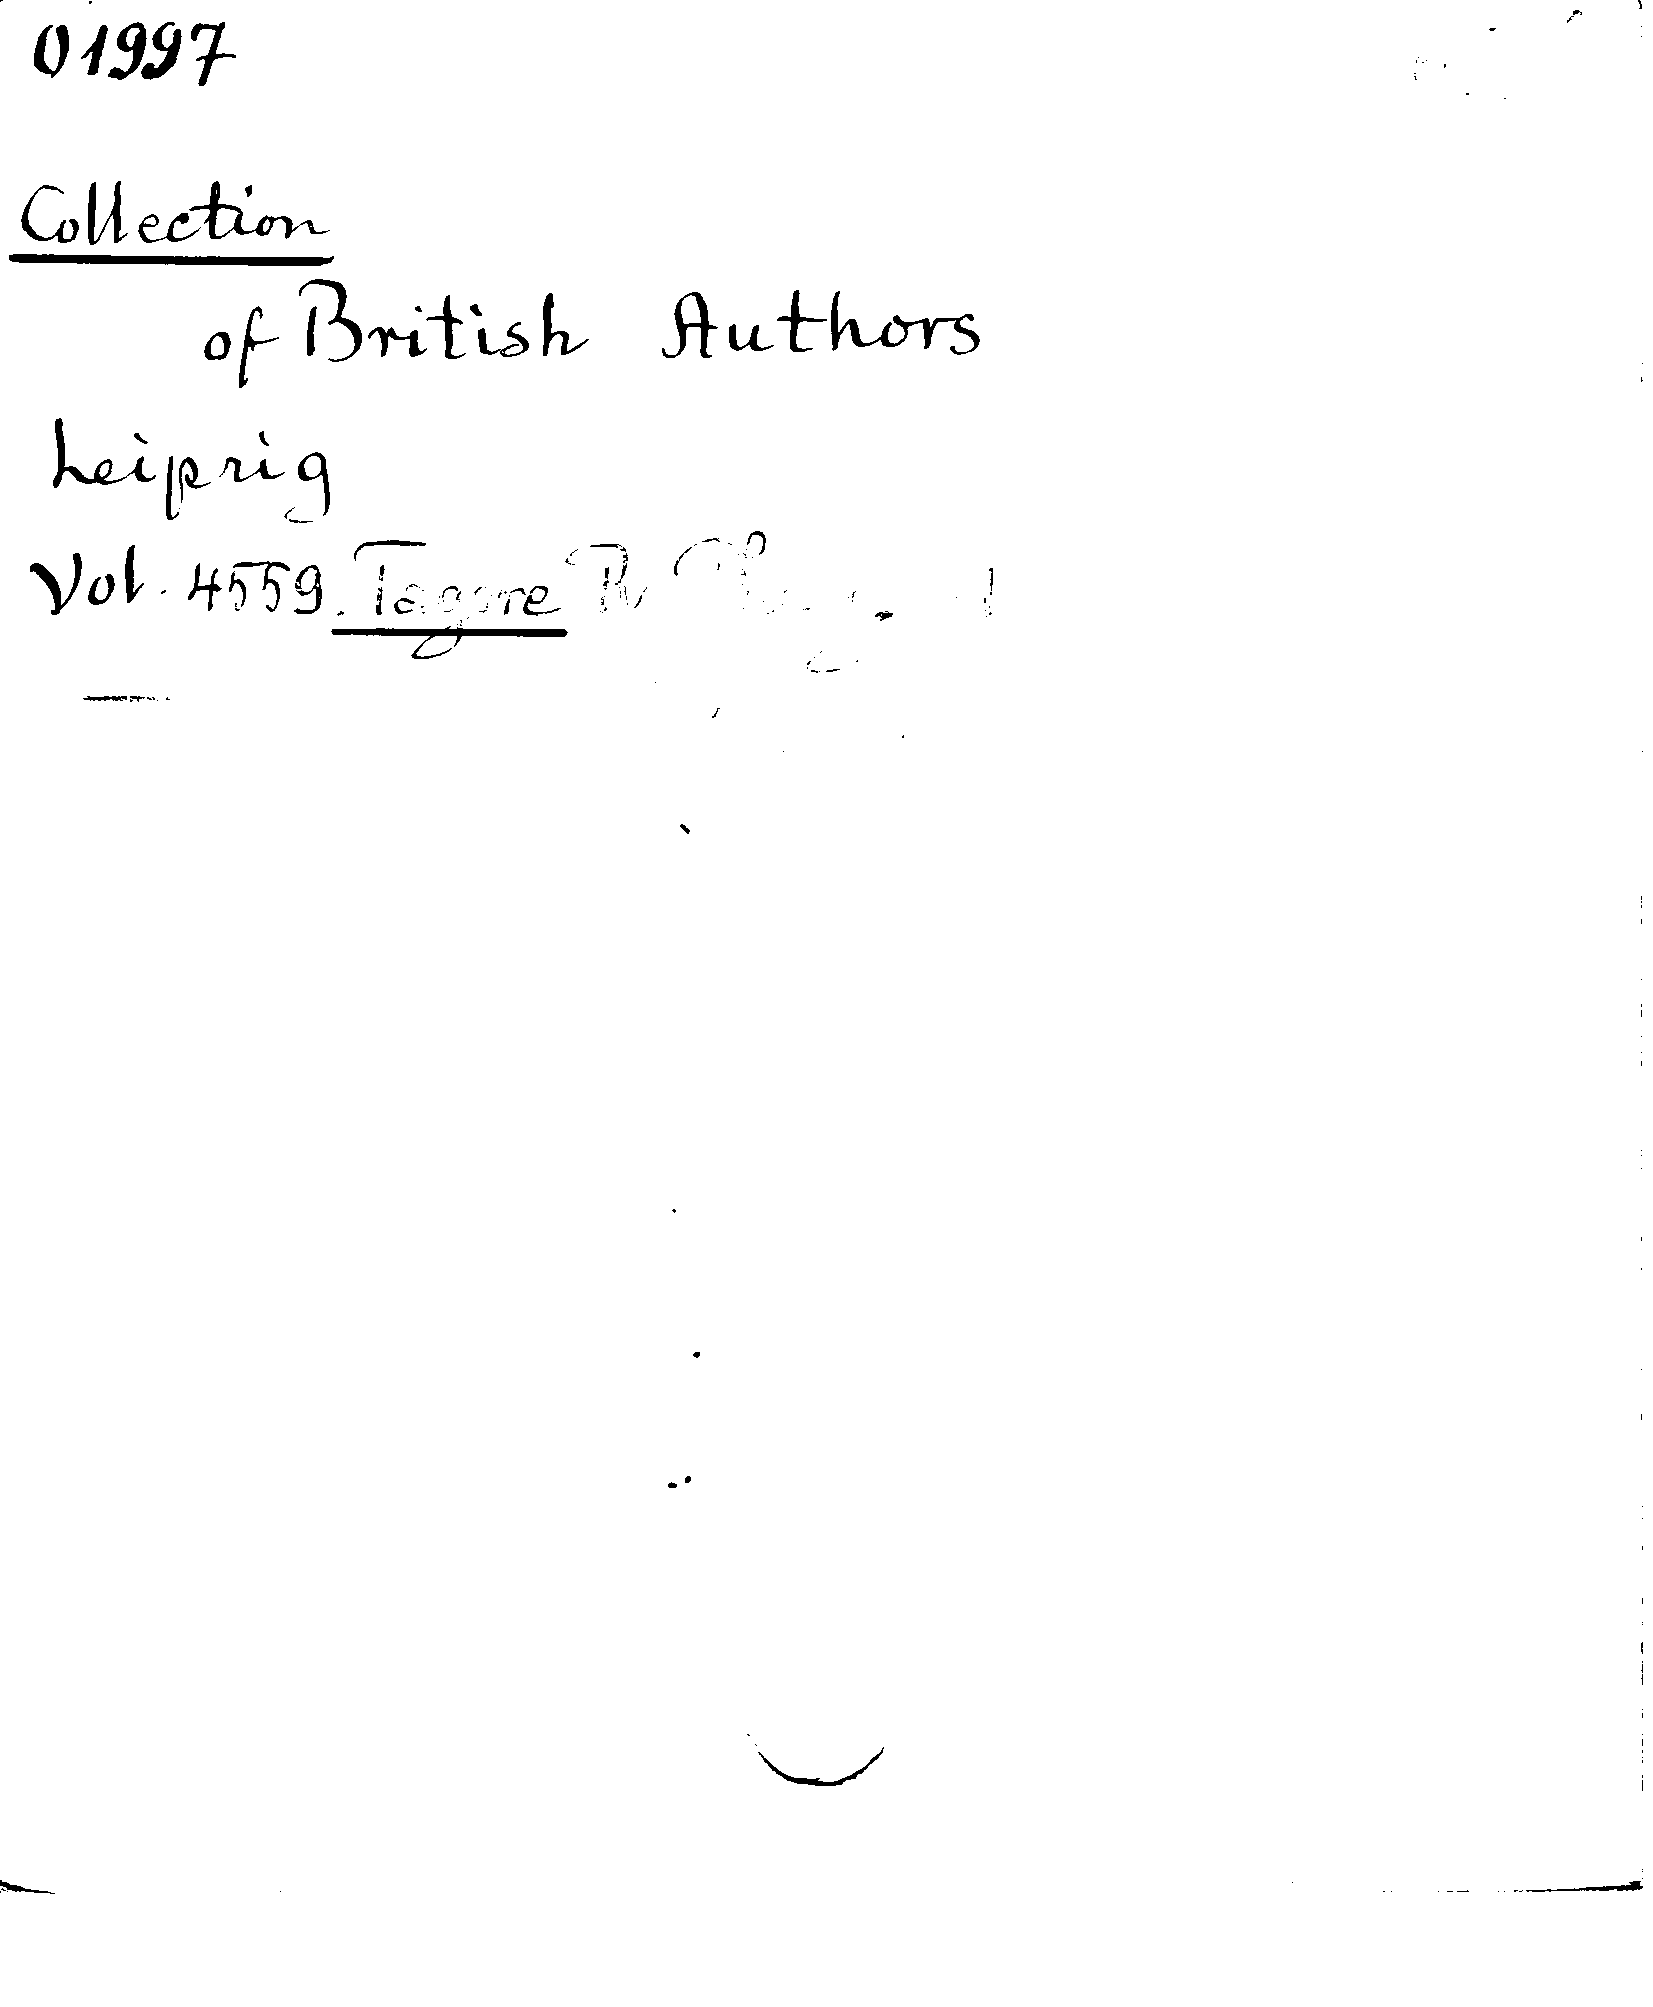 01997
Collection
of British Authors
Leipzig
Vol. 4559. Tagore R